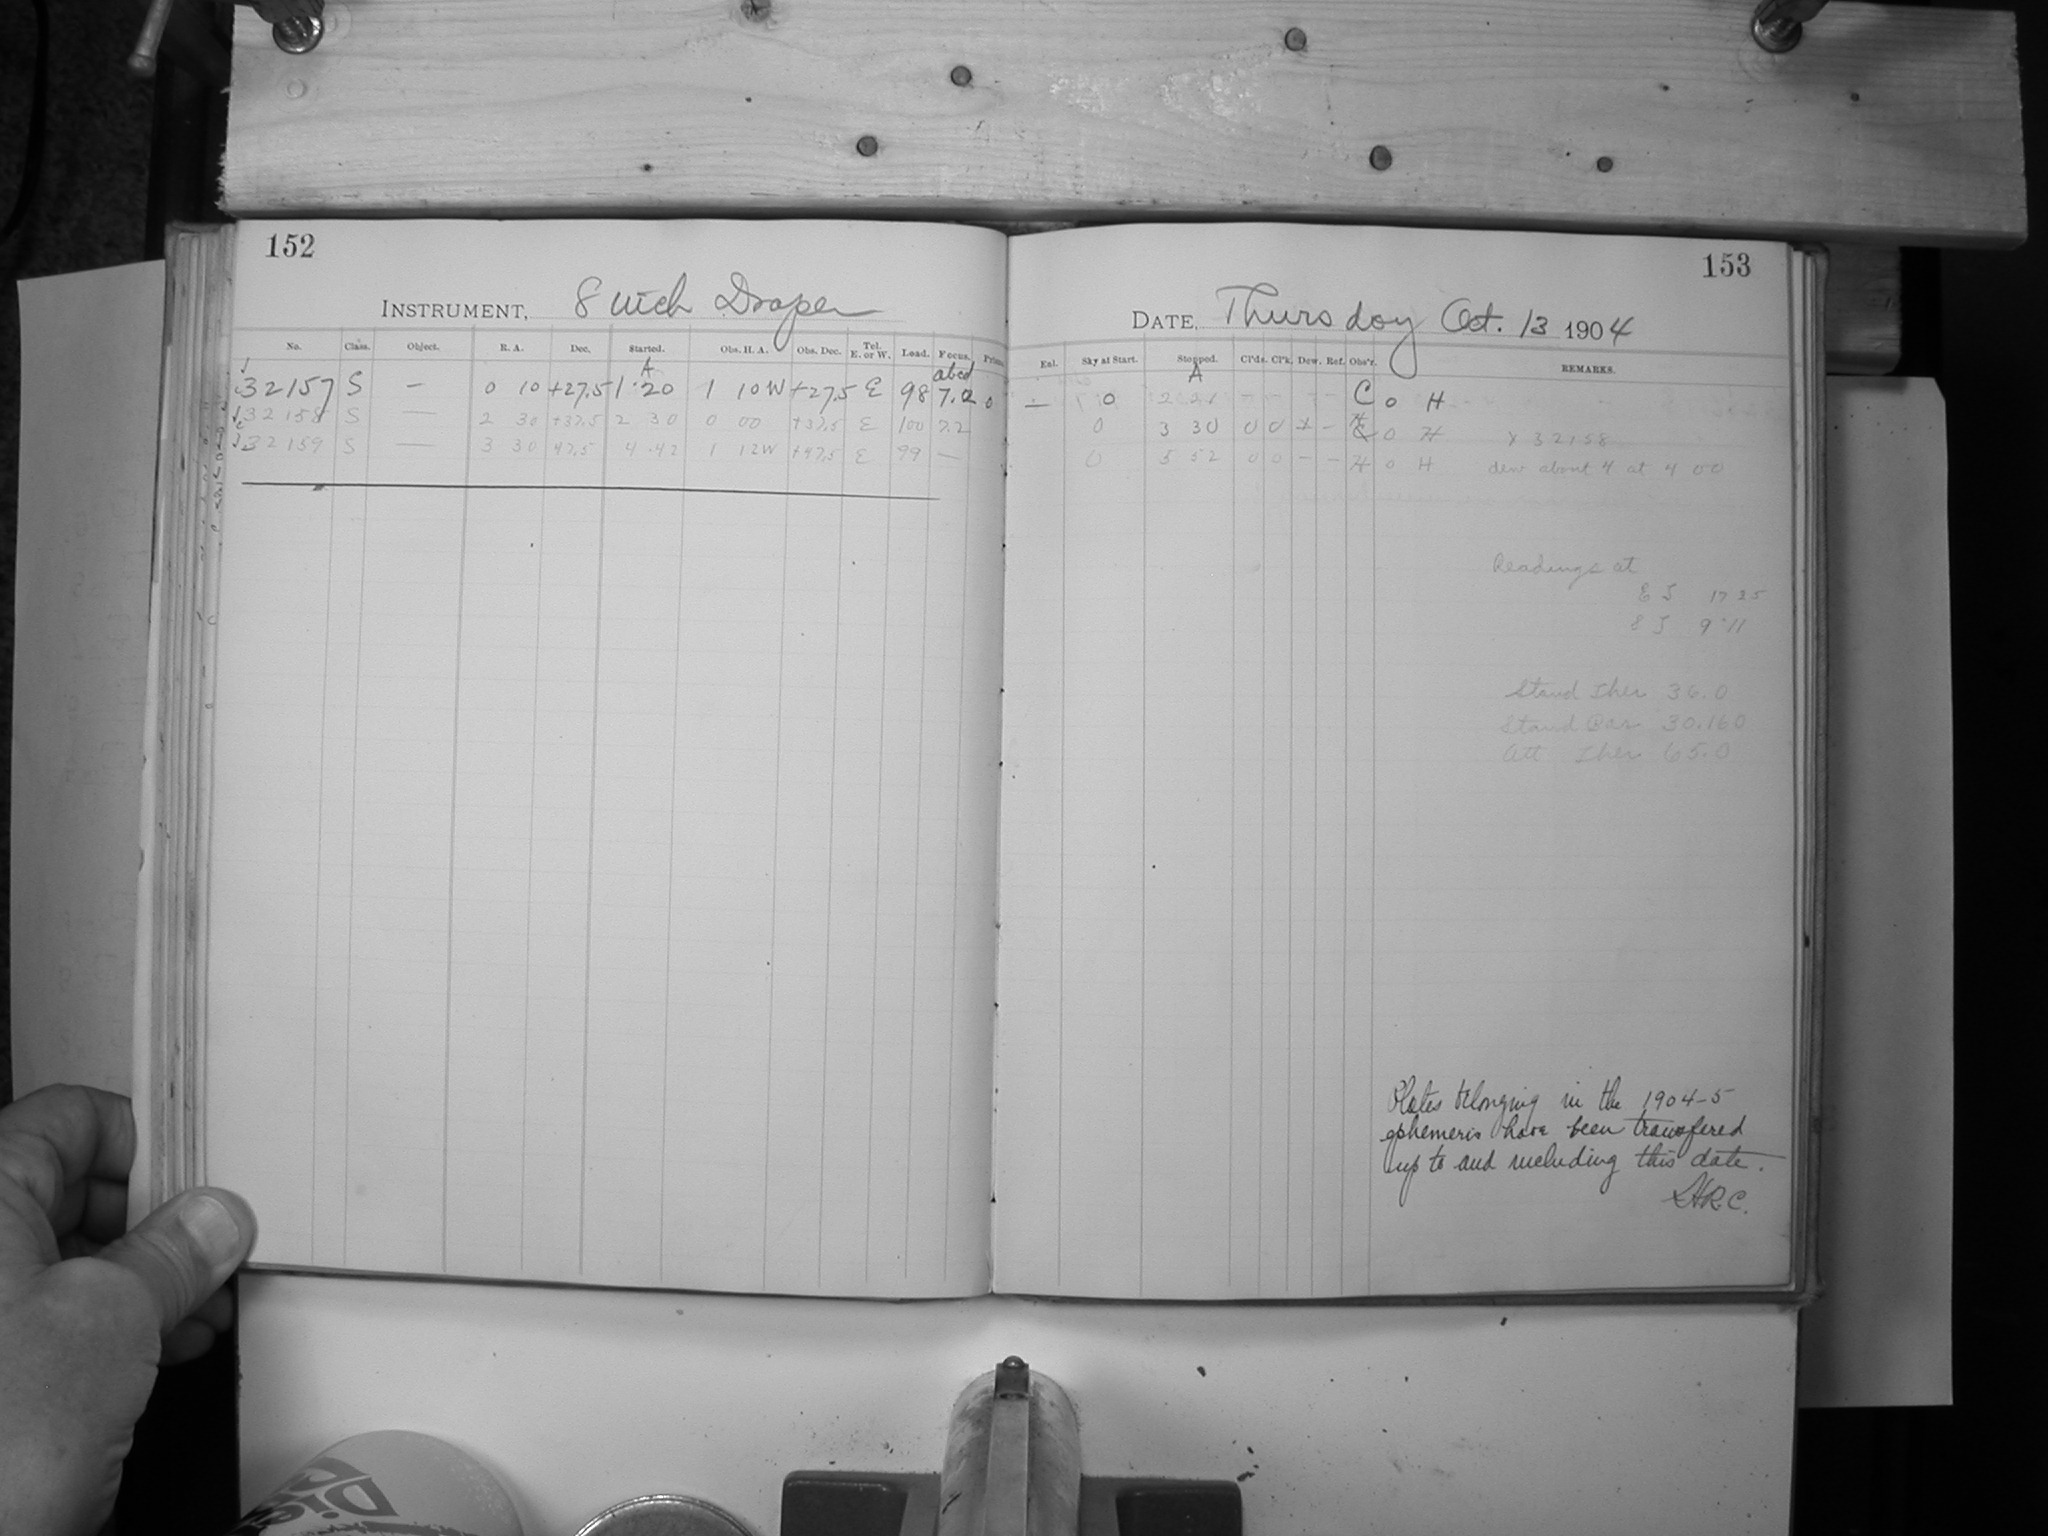 152
INSTRUMENT, 8 inch Draper
No. Class. Object. R. A. Dec. Started. Obs. H. A. Obs. Dec. Tel. E. or W. Load. Focus.
A abcd
32157 S — 0 10 +27,5 1 20 1 10 W +27,5 E 98 7.2 0
32158 S — 2 30 +37,5 2 30 0 00 +37,5 E 100 7.2
32159 S — 3 30 47,5 4 42 1 12W +47,5 E 99 —
153
DATE, Thursday Oct. 13 1904
Enl. Sky at Start. Stopped. Cl'ds. Cl'k. Dew. Ref. Obs'r. REMARKS.
A
— 0 2 21 - - - - C O H
0 3 30 0 0 + - O H x 32158
0 5 52 0 0 - - H O H dew about 4 at 4 00
Readings at
17 35
9 11
Stand Ther 36.0
Stand Bar 30.160
Att Ther 65.0
Plates belonging in the 1904-5
ephemeris have been transfered
up to and including this date.
Die